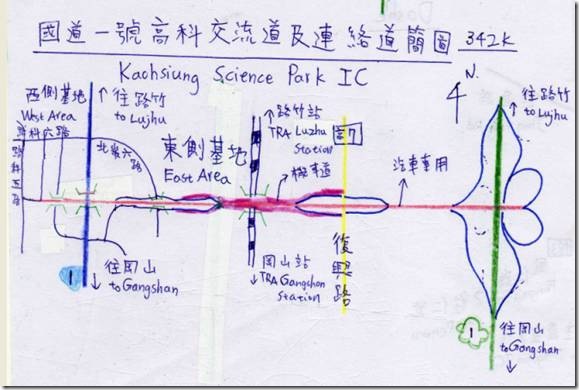 國道一號高科交流道及連絡道簡圖 342K
Kaohsiung Science Park IC
西側基地
West Area
路科六路
路科五路
往路竹
to Lujhu
北嶺六路
東側基地
East Area
路竹站
TRA Luzhu
Station
機車道
汽車專用
N.
往路竹
to Lujhu
往岡山
to Gangshan
1
岡山站
TRA Gangshan
Station
復興路
1
往岡山
to Gangshan